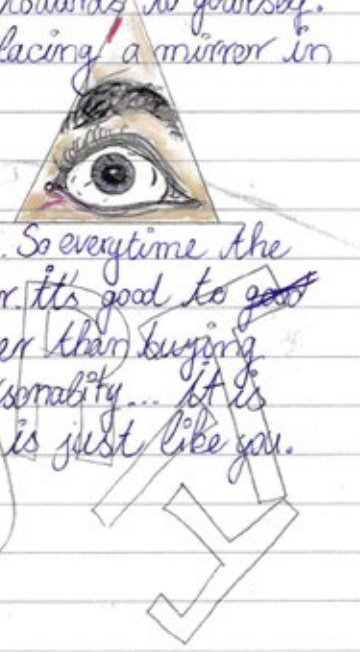 towards to yourself.
lacing a mirror in
. So everytime the
r. It's good to good
er than buying
sonality... it is
is just like you.